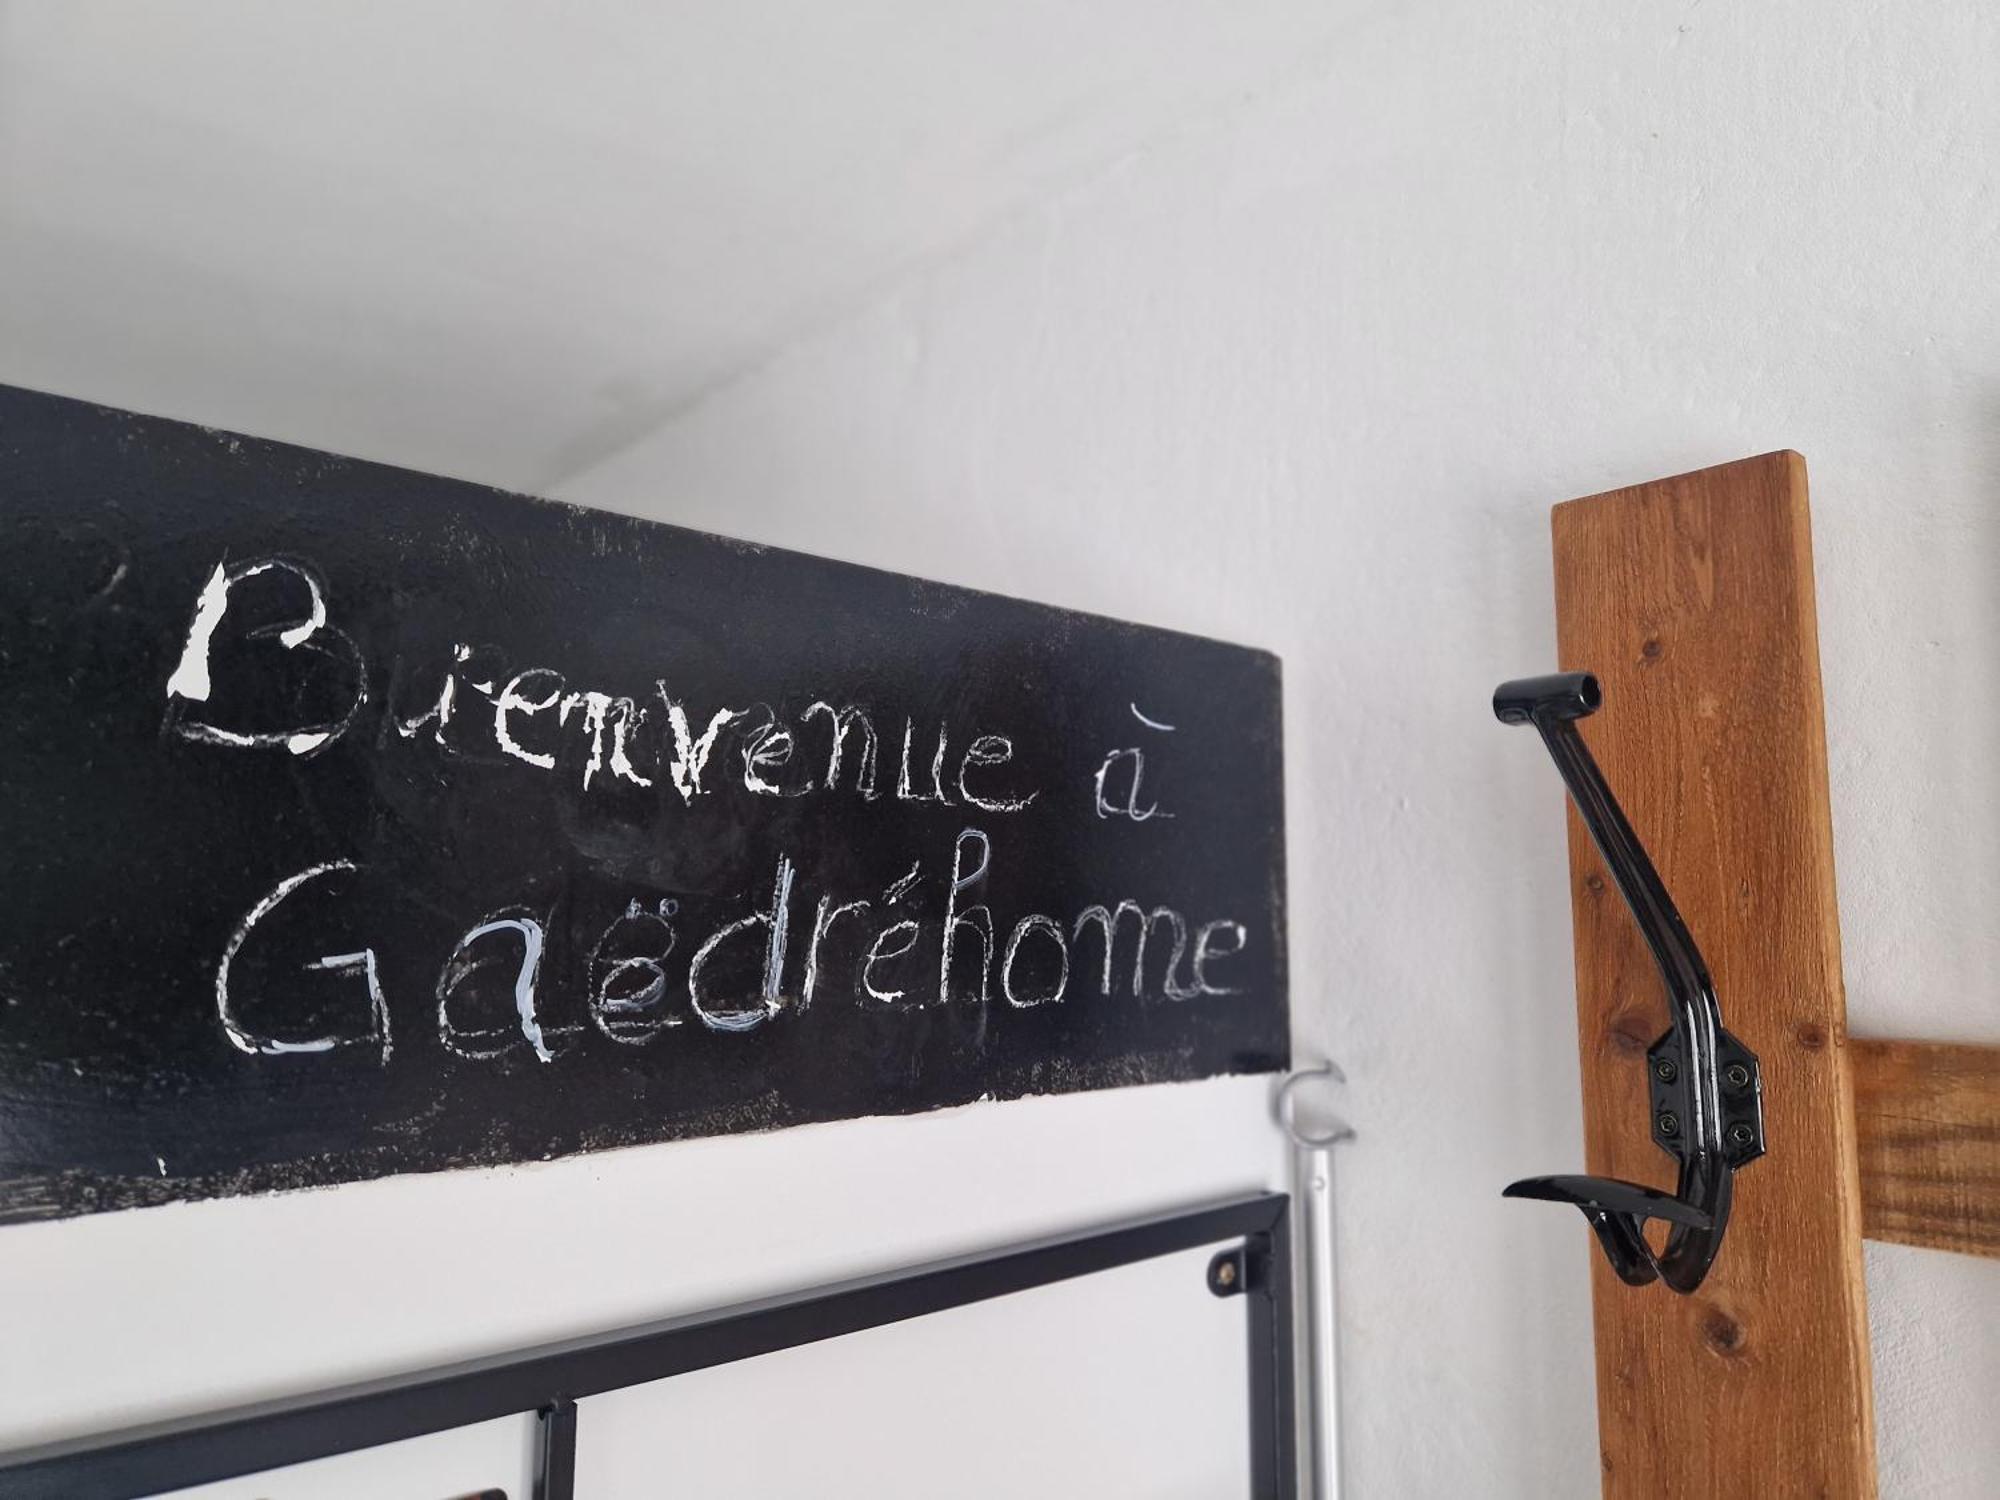 Bienvenue à
Gaëdréhome